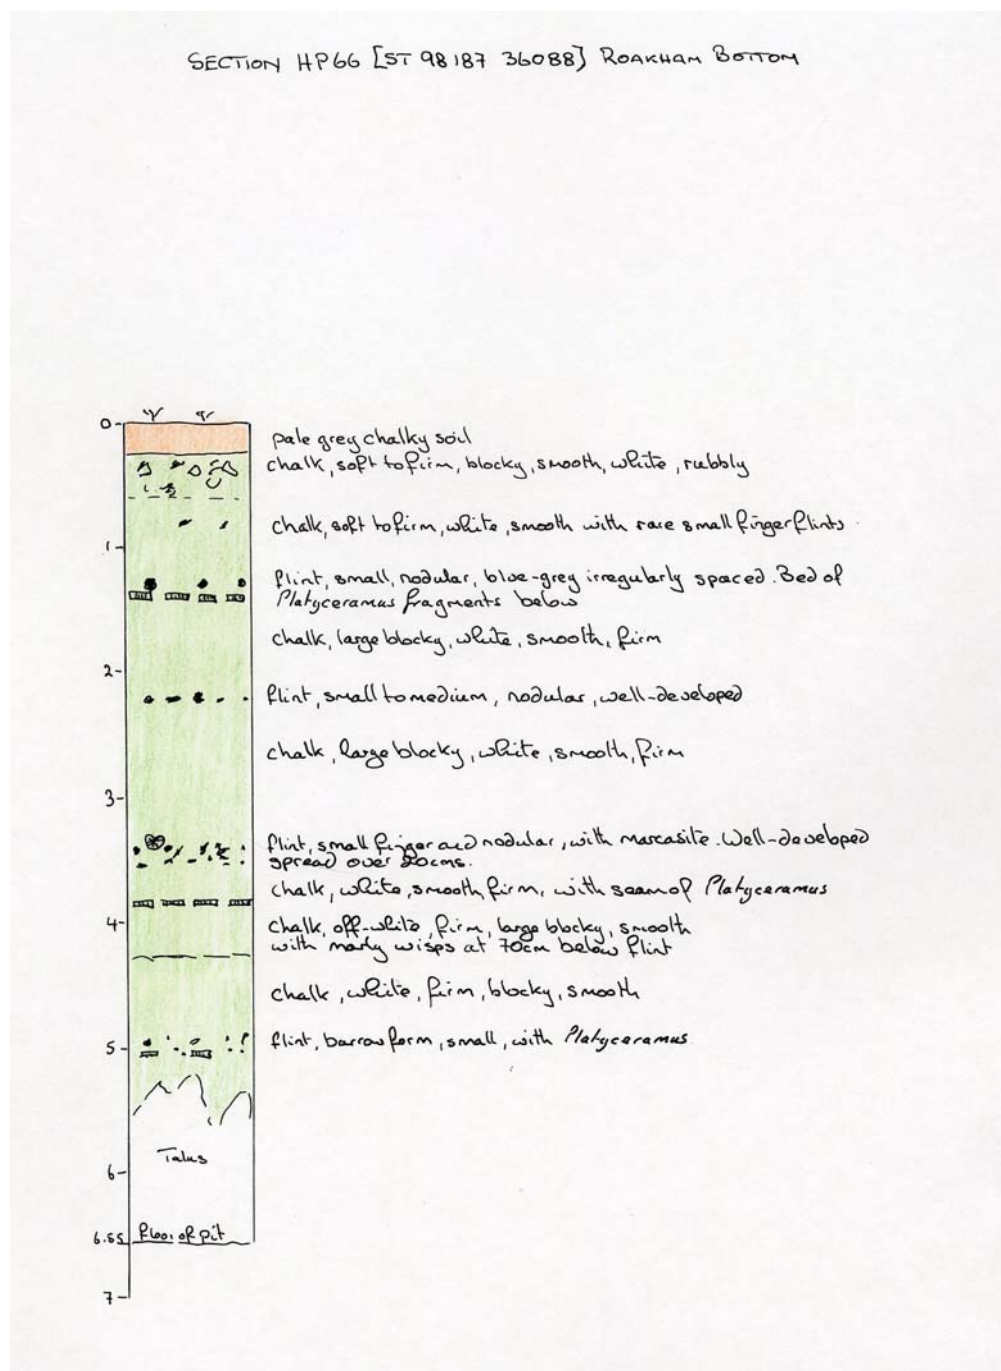 SECTION HP66 [ST 98187 36088] ROAKHAM BOTTOM
0
pale grey chalky soil
chalk, soft to firm, blocky, smooth, white, rubbly
chalk, soft to firm, white, smooth with rare small finger flints.
1
flint, small, nodular, blue-grey irregularly spaced. Bed of
Platyceramus fragments below
chalk, large blocky, white, smooth, firm
2
flint, small to medium, nodular, well-developed
chalk, large blocky, white, smooth, firm
3
flint, small finger and nodular, with marcasite. Well-developed
spread over 20cms.
chalk, white, smooth, firm, with seam of Platyceramus
4
chalk, off-white, firm, large blocky, smooth
with marly wisps at 70cm below flint
chalk, white, firm, blocky, smooth
5
flint, barrow form, small, with Platyceramus
Talus
6
6.65 floor of pit
7